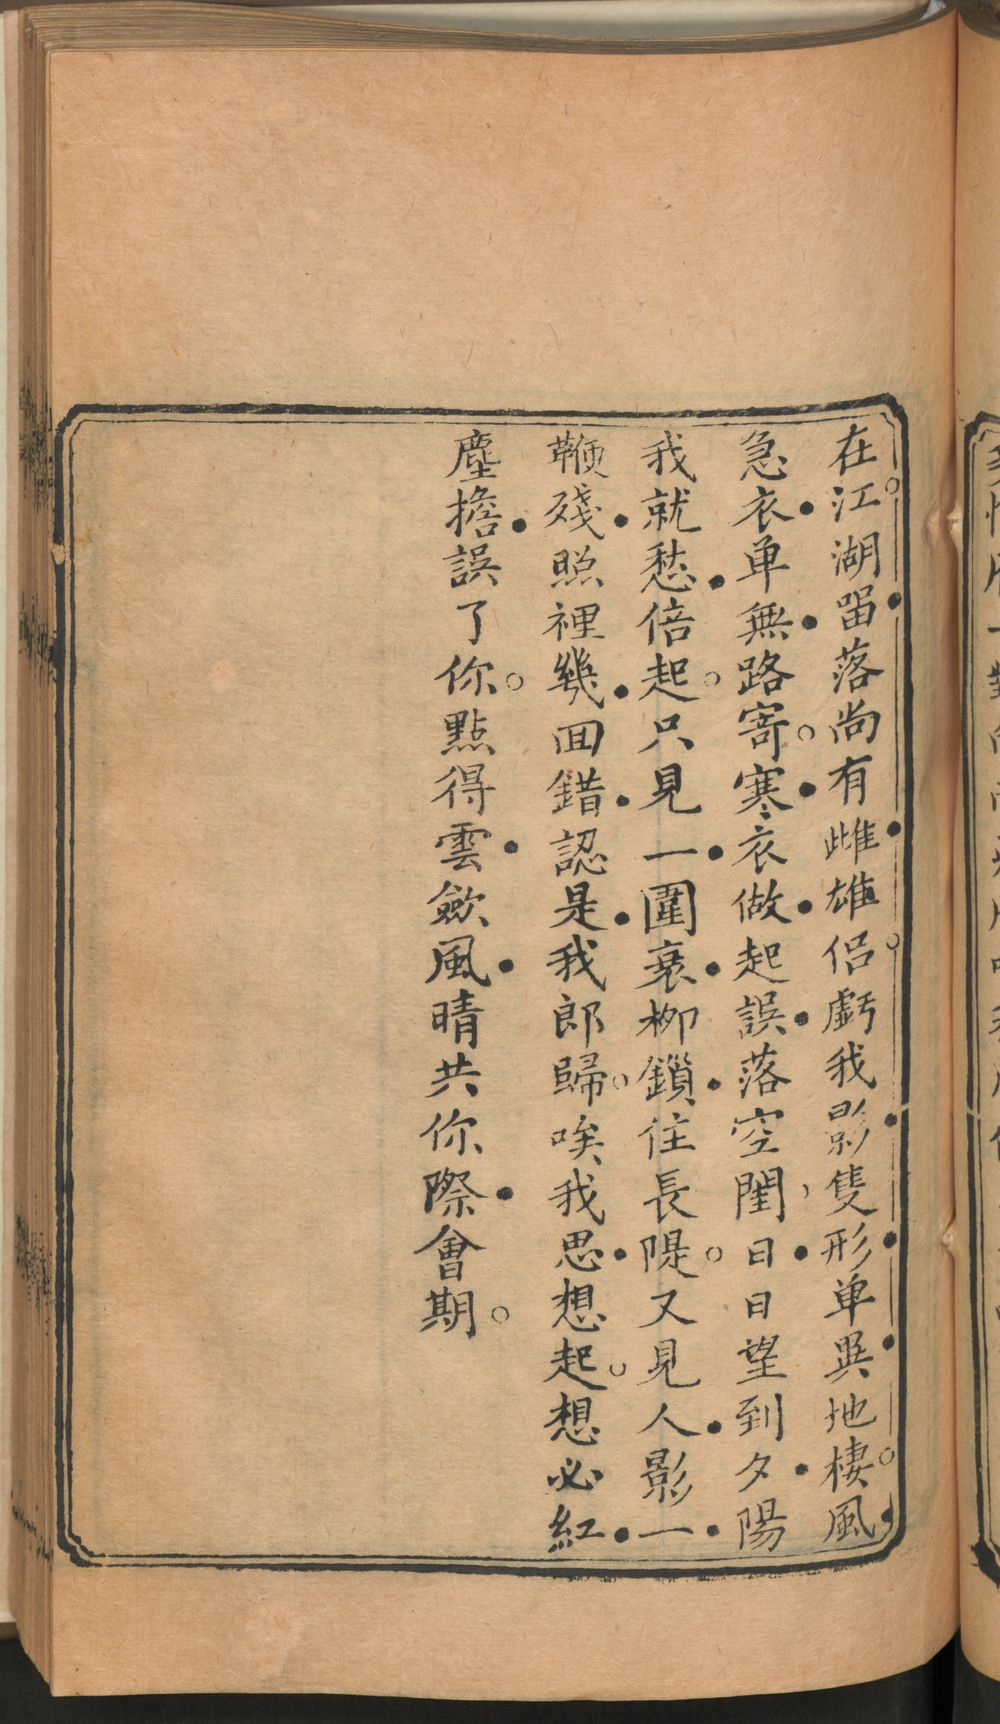 在江湖畱落尚有雌雄侶虧我影隻形單異地棲風
急衣單無路寄寒衣做起誤落空閨日日望到夕陽
我就愁倍起只見一圍衰柳鎖住長隄又見人影一
鞭殘照裡幾囬錯認是我郎歸唉我思想起想必紅
塵擔誤了你點得雲歛風晴共你際會期